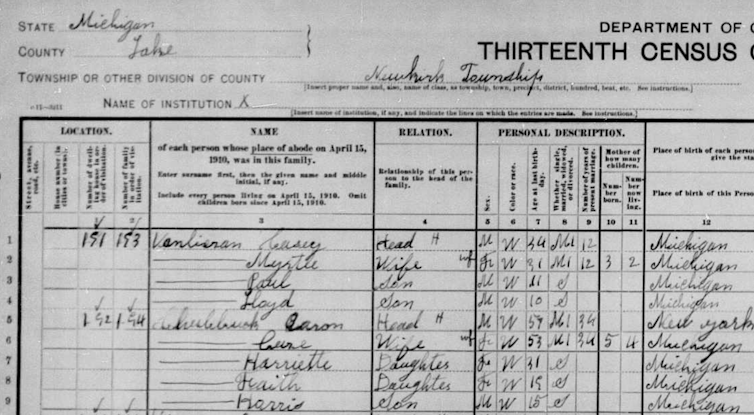 STATE Michigan
COUNTY Lake
DEPARTMENT OF C
THIRTEENTH CENSUS
TOWNSHIP OR OTHER DIVISION OF COUNTY Newkirk Township
[Insert proper name and, also, name of class, as township, town, precinct, district, hundred, beat, etc. See instructions.]
NAME OF INSTITUTION X
[Insert name of institution, if any, and indicate the lines on which the entries are made. See instructions.]
LOCATION. NAME RELATION. PERSONAL DESCRIPTION.
Street, avenue, road, etc.
House number in cities or towns.
Number of dwelling house in order of visitation.
Number of family in order of visitation.
of each person whose place of abode on April 15, 1910, was in this family.
Enter surname first, then the given name and middle initial, if any.
Include every person living on April 15, 1910. Omit children born since April 15, 1910.
Relationship of this person to the head of the family.
Sex.
Color or race.
Age at last birthday.
Whether single, married, widowed, or divorced.
Number of years of present marriage.
Mother of how many children.
Number born.
Number now living.
Place of birth of each person
give the sta
Place of birth of this Person
3 4 5 6 7 8 9 10 11 12
1 151 153 Casey Head H M W 34 M1 12 Michigan
2 Myrtle Wife wf F W 31 M1 12 3 2 Michigan
3 Paul Son M W 11 S Michigan
4 Lloyd Son M W 10 S Michigan
5 152 154 Aaron Head H M W M1 34 New York
6 Wife wf F W 53 M1 34 5 4 Michigan
7 Harriette Daughter F W 31 S Michigan
8 Faith Daughter F W 19 S Michigan
9 Harris Son M W 15 S Michigan